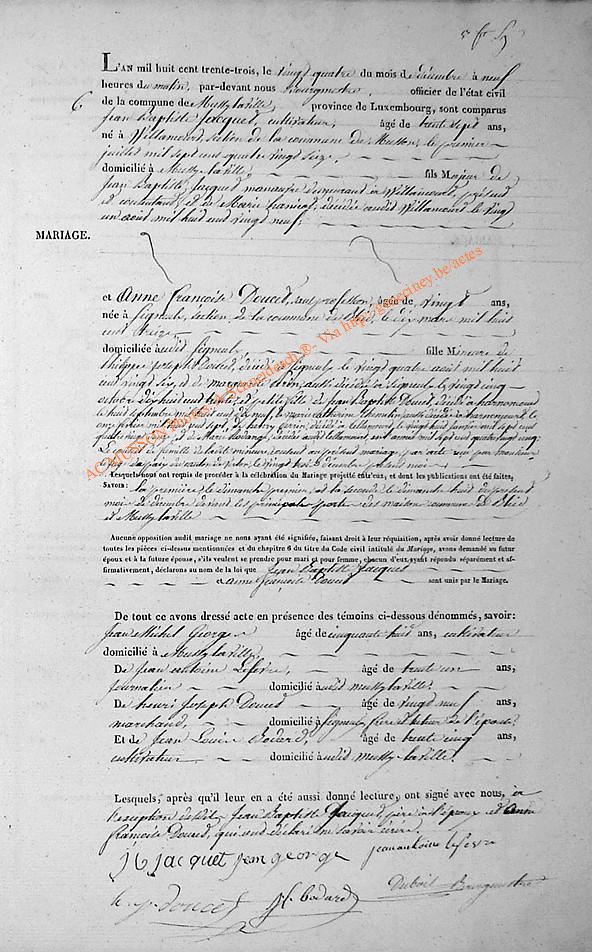 L'AN mil huit cent trente-trois, le vingt quatre du mois de décembre à neuf
heures du matin, par-devant nous Bourgmestre, officier de l'état civil
6. de la commune de Mussylaville, province de Luxembourg, sont comparus
Jean Baptiste Jacquet, cultivateur, âgé de trente sept ans,
né à Willancourt, section de la commune de Musson, le premier
juillet mil sept cent quatre vingt seize,
domicilié à Mussylaville, fils Majeur de
Jean Baptiste Jacquet manœuvre demeurant à Willancourt, présent
et consentant, et de Marie françois, décédée audit Willancourt le vingt
un août mil huit cent vingt neuf.
MARIAGE.
et Anne françoise Doucet, sans profession, âgée de vingt ans,
née à Signeulx, section de la commune de Bleid, le dix mars mil huit
cent treize
domiciliée audit Signeulx fille Mineure de
Philippe Joseph Doucet, décédé à Signeulx le vingt quatre août mil huit
cent vingt six, et de aussi décédée à Signeulx le vingt cinq
octobre dix huit cent trente, et petite fille de Jean Baptiste Doucet, décédé à
le huit septembre mil huit cent neuf, et marie catherine aussi décédée à le
onze mil sept cent de henry décédé à le vingt huit janvier mil sept cent
quatre vingt et de Marie décédée audit en mil sept cent quatre vingt cinq.
Le conseil de famille de ladite mineure, consent au présent mariage par acte reçu par monsieur
juge de paix du canton de Virton le vingt décembre présent mois
Lesquels nous ont requis de procéder à la célébration du Mariage projeté entr'eux, et dont les publications ont été faites,
SAVOIR : la première le dimanche premier, et la seconde le dimanche huit du présent
mois de décembre devant les principales portes des maisons communes de Bleid
et Mussylaville
Aucune opposition audit mariage ne nous ayant été signifiée, faisant droit à leur réquisition, après avoir donné lecture de
toutes les pièces ci-dessus mentionnées et du chapitre 6 du titre du Code civil intitulé du Mariage, avons demandé au futur
époux et à la future épouse, s'ils veulent se prendre pour mari et pour femme, chacun d'eux ayant répondu séparément et af-
firmativement, déclarons au nom de la loi que Jean Baptiste Jacquet
et anne françoise Doucet sont unis par le Mariage.
De tout ce avons dressé acte en présence des témoins ci-dessous dénommés, savoir:
Jean Michel George âgé de cinquante huit ans, cultivateur
domicilié à Mussylaville.
De Jean antoine Lefevre, âgé de trente un ans,
journalier domicilié audit mussylaville.
De henri Joseph Doucet âgé de vingt neuf ans,
marchand, domicilié à Signeulx, frère et tuteur de l'épouse
Et de Jean Louis Bodard, âgé de trente cinq ans,
cultivateur domicilié audit mussylaville.
Lesquels, après qu'il leur en a été aussi donné lecture, ont signé avec nous, à
l'exception dudit Jean Baptiste Jacquet, père de l'époux et Anne
françoise Doucet, qui ont déclaré ne savoir écrire.
J b jacquet jean george jean antoine lefevre
h j Doucet J L bodard Duboit Bourgmestre
AG MUSSON Photos A. Schneidesch ® - Via http://gediciney.be/actes